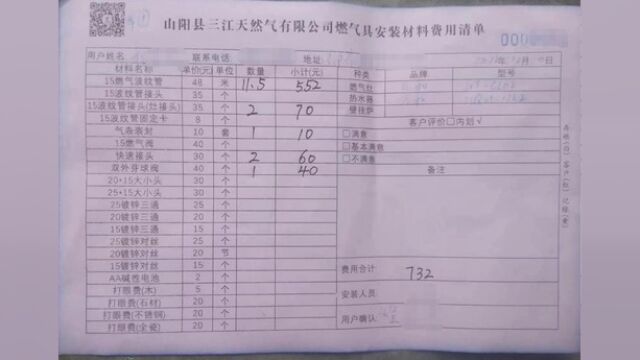 山阳县三江天然气有限公司燃气具安装材料费用清单
000
用户姓名 联系电话 地址 年 月 日
材料名称 单价(元) 单位 数量 小计(元) 种类 品牌 型号
15燃气波纹管 48 米 11.5 552 燃气灶
15波纹管接头 35 个 热水器
15波纹管接头(灶接头) 35 个 2 70 壁挂炉
15波纹管固定卡 8 个 客户评价□内划√
气表表封 10 套 1 10 □满意
15燃气阀 40 个 □基本满意
快速接头 30 个 2 60 □不满意
双外芽球阀 40 个 1 40 备注
20*15大小头 30 个
25*15大小头 30 个
25镀锌三通 25 个
20镀锌三通 20 个
15镀锌三通 15 个
25镀锌对丝 25 个
20镀锌对丝 20 节
15镀锌对丝 15 个
AA碱性电池 2 个 费用合计 732
打眼费(木) 5 个
打眼费(石材) 20 个 安装人员
打眼费(不锈钢) 20 个 用户确认
打眼费(全瓷) 20 个